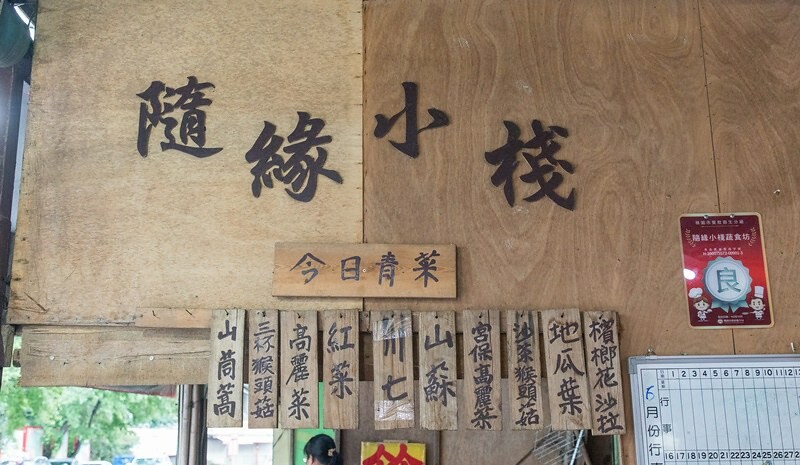 隨緣小棧
今日青菜
山茼蒿
三杯猴頭菇
高麗菜
紅菜
川七
山蘇
宮保高麗菜
沙茶猴頭菇
地瓜葉
檳榔花沙拉
隨緣小棧蔬食坊
良
6月份行事
1 2 3 4 5 6 7 8 9 10 11 12 13
16 17 18 19 20 21 22 23 24 25 26 27 28